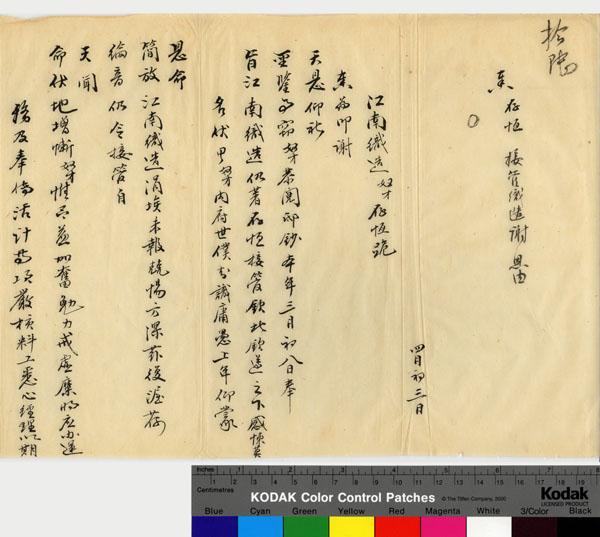 奏 存恆 接管織造謝 恩由
四月初三日
江南織造奴才存恆跪
奏為叩謝
天恩仰祈
聖鑒事竊奴才恭閱邸鈔本年三月初八日奉
旨江南織造仍著存恆接管欽此欽遵之下感悚
名伏思奴才內府世僕 識庸愚上年仰蒙
恩命
簡放江南織造涓埃未報兢惕方深茲復渥荷
綸音仍令接管自
天聞
命伏地增慚奴才惟益加奮勉力戒虛糜將應辦運
務及奉傳活計等項嚴核料工悉心經理以期
Inches
Centimetres
KODAK Color Control Patches
© The Tiffen Company, 2000
Kodak
LICENSED PRODUCT
Blue Cyan Green Yellow Red Magenta White 3/Color Black